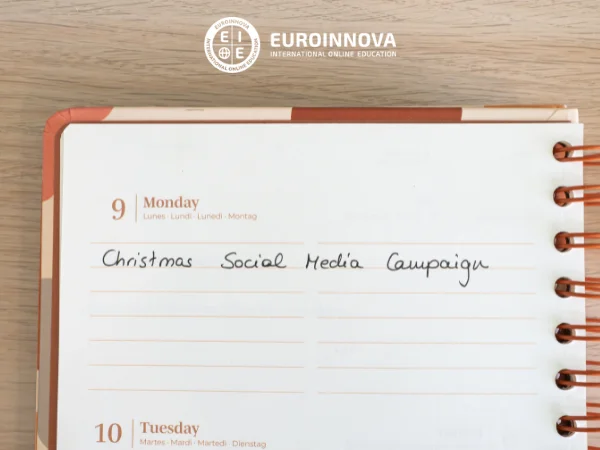 EUROINNOVA
INTERNATIONAL ONLINE EDUCATION
EUROINNOVA
INTERNATIONAL ONLINE EDUCATION
E I
E
9 Monday
Lunes · Lundi · Lunedi · Montag
Christmas Social Media Campaign
10 Tuesday
Martes · Mardi · Martedi · Dienstag